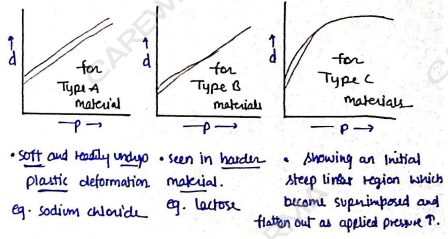 ↑
d
for
Type A
material
— P →
↑
d
for
Type B
materials
— P →
↑
d
for
Type C
materials
— P →
• soft and readily undergo
plastic deformation
eg. sodium chloride
• seen in harder
material.
eg. lactose
• showing an initial
steep linear region which
become superimposed and
flatten out as applied pressure ↑.